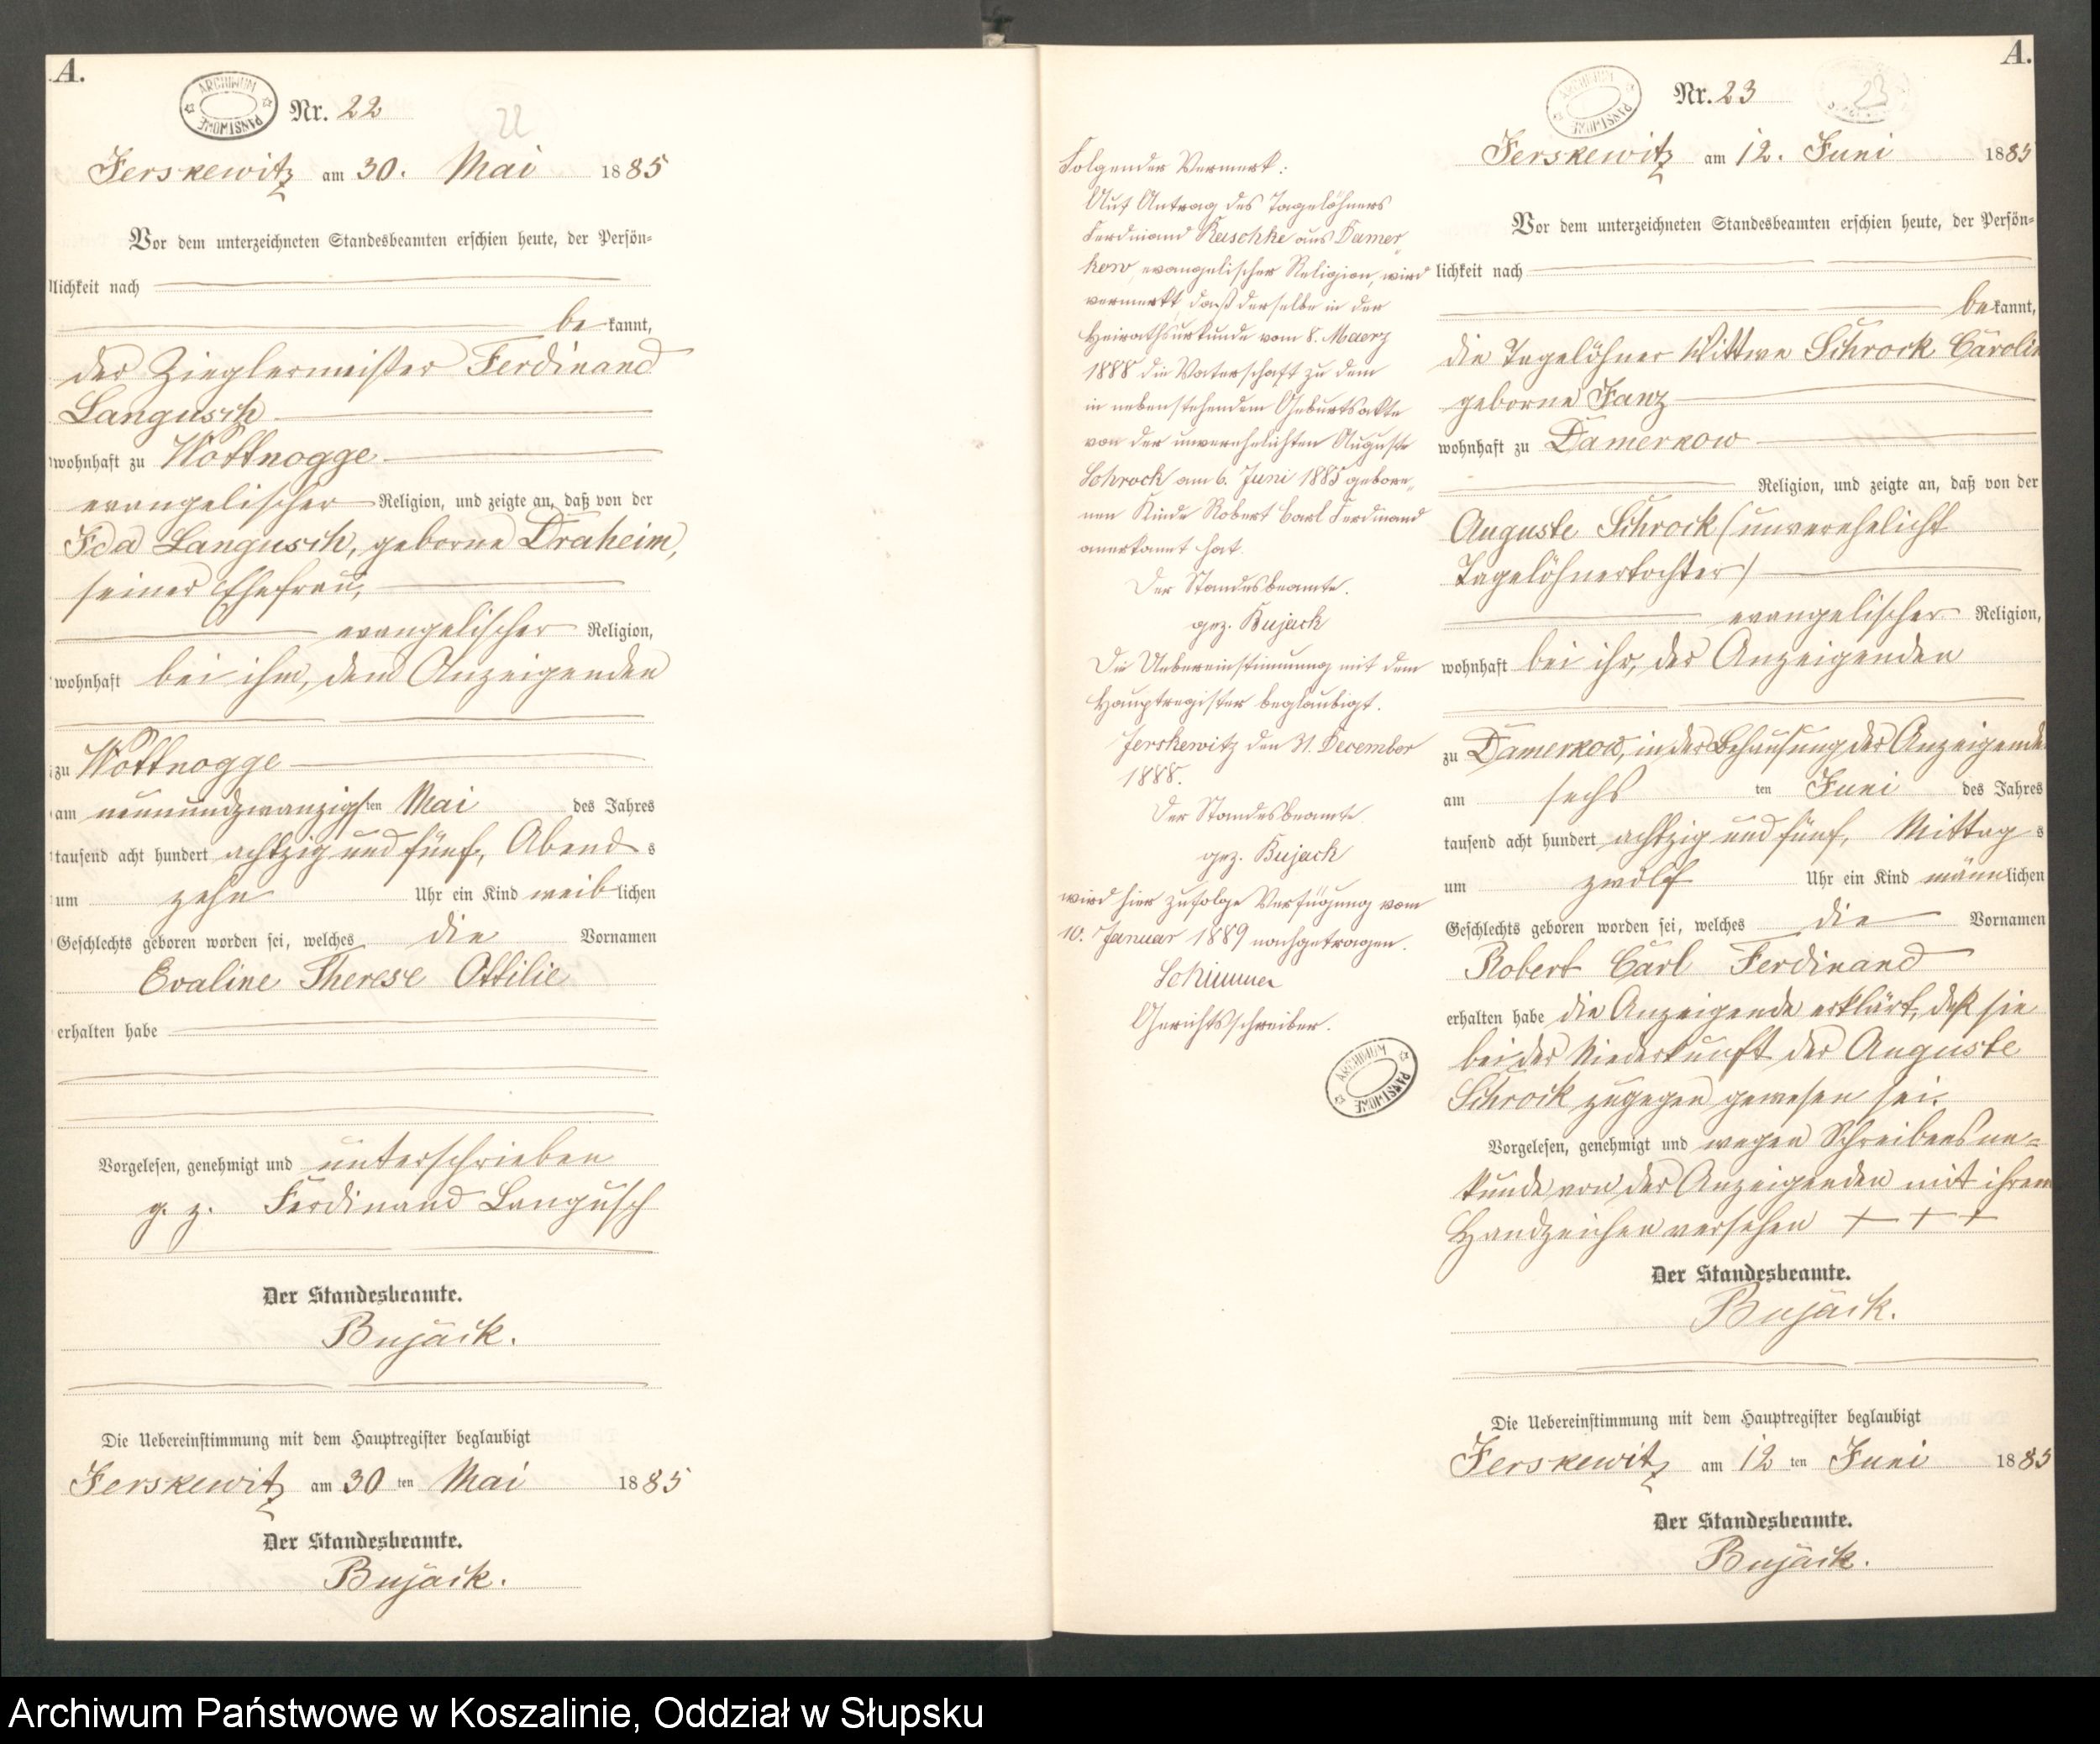 A.
ARCHIWUM PAŃSTWOWE
Nr. 22
22
Jerskewitz am 30. Mai 1885
Vor dem unterzeichneten Standesbeamten erschien heute, der Persön-
lichkeit nach
bekannt,
der Zieglermeister Ferdinand
Langusch
wohnhaft zu Wottnogge
evangelischer Religion, und zeigte an, daß von der
Ida Langusch, geborne Draheim,
seiner Ehefrau,
evangelischer Religion,
wohnhaft bei ihm, dem Anzeigenden
zu Wottnogge
am neunundzwanzigsten Mai des Jahres
tausend acht hundert achtzig und fünf, Abends
um zehn Uhr ein Kind weiblichen
Geschlechts geboren worden sei, welches die Vornamen
Evaline Therese Ottilie
erhalten habe
Vorgelesen, genehmigt und unterschrieben
g. z. Ferdinand Langusch
Der Standesbeamte.
Bujack.
Die Uebereinstimmung mit dem Hauptregister beglaubigt
Jerskewitz am 30 ten Mai 1885
Der Standesbeamte.
Bujack.
Folgender Vermerk:
Auf Antrag des Tagelöhners
Ferdinand Raschke aus Damer-
kow, evangelischer Religion, wird
vermerkt, daß derselbe in der
Heirathsurkunde vom 8. Maerz
1888 die Vaterschaft zu dem
in nebenstehendem Geburtsakte
von der unverehelichten Auguste
Schrock am 6. Juni 1885 gebore-
nen Kinde Robert Carl Ferdinand
anerkannt hat.
Der Standesbeamte.
gez. Bujack
Die Uebereinstimmung mit dem
Hauptregister beglaubigt.
Jerskewitz den 31. December
1888.
Der Standesbeamte.
gez. Bujack
wird hier zufolge Verfügung vom
10. Januar 1889 nachgetragen.
Schimmer
Gerichtsschreiber.
ARCHIWUM PAŃSTWOWE
A.
ARCHIWUM PAŃSTWOWE
Nr. 23
23
Jerskewitz am 12. Juni 1885
Vor dem unterzeichneten Standesbeamten erschien heute, der Persön-
lichkeit nach
bekannt,
die Tagelöhner Wittwe Schrock Carolin
geborne Janz
wohnhaft zu Damerkow
Religion, und zeigte an, daß von der
Auguste Schrock (unverehelicht
Tagelöhnertochter)
evangelischer Religion,
wohnhaft bei ihr, der Anzeigenden
zu Damerkow, in der Behausung der Anzeigende
am sechs ten Juni des Jahres
tausend acht hundert achtzig und fünf, Mittags
um zwölf Uhr ein Kind männlichen
Geschlechts geboren worden sei, welches die Vornamen
Robert Carl Ferdinand
erhalten habe die Anzeigende erklärt, daß sie
bei der Niederkunft der Auguste
Schrock zugegen gewesen sei.
Vorgelesen, genehmigt und wegen Schreibensun-
kunde von der Anzeigenden mit ihrem
Handzeichen versehen + + +
Der Standesbeamte.
Bujack.
Die Uebereinstimmung mit dem Hauptregister beglaubigt
Jerskewitz am 12 ten Juni 1885
Der Standesbeamte.
Bujack.
Archiwum Państwowe w Koszalinie, Oddział w Słupsku